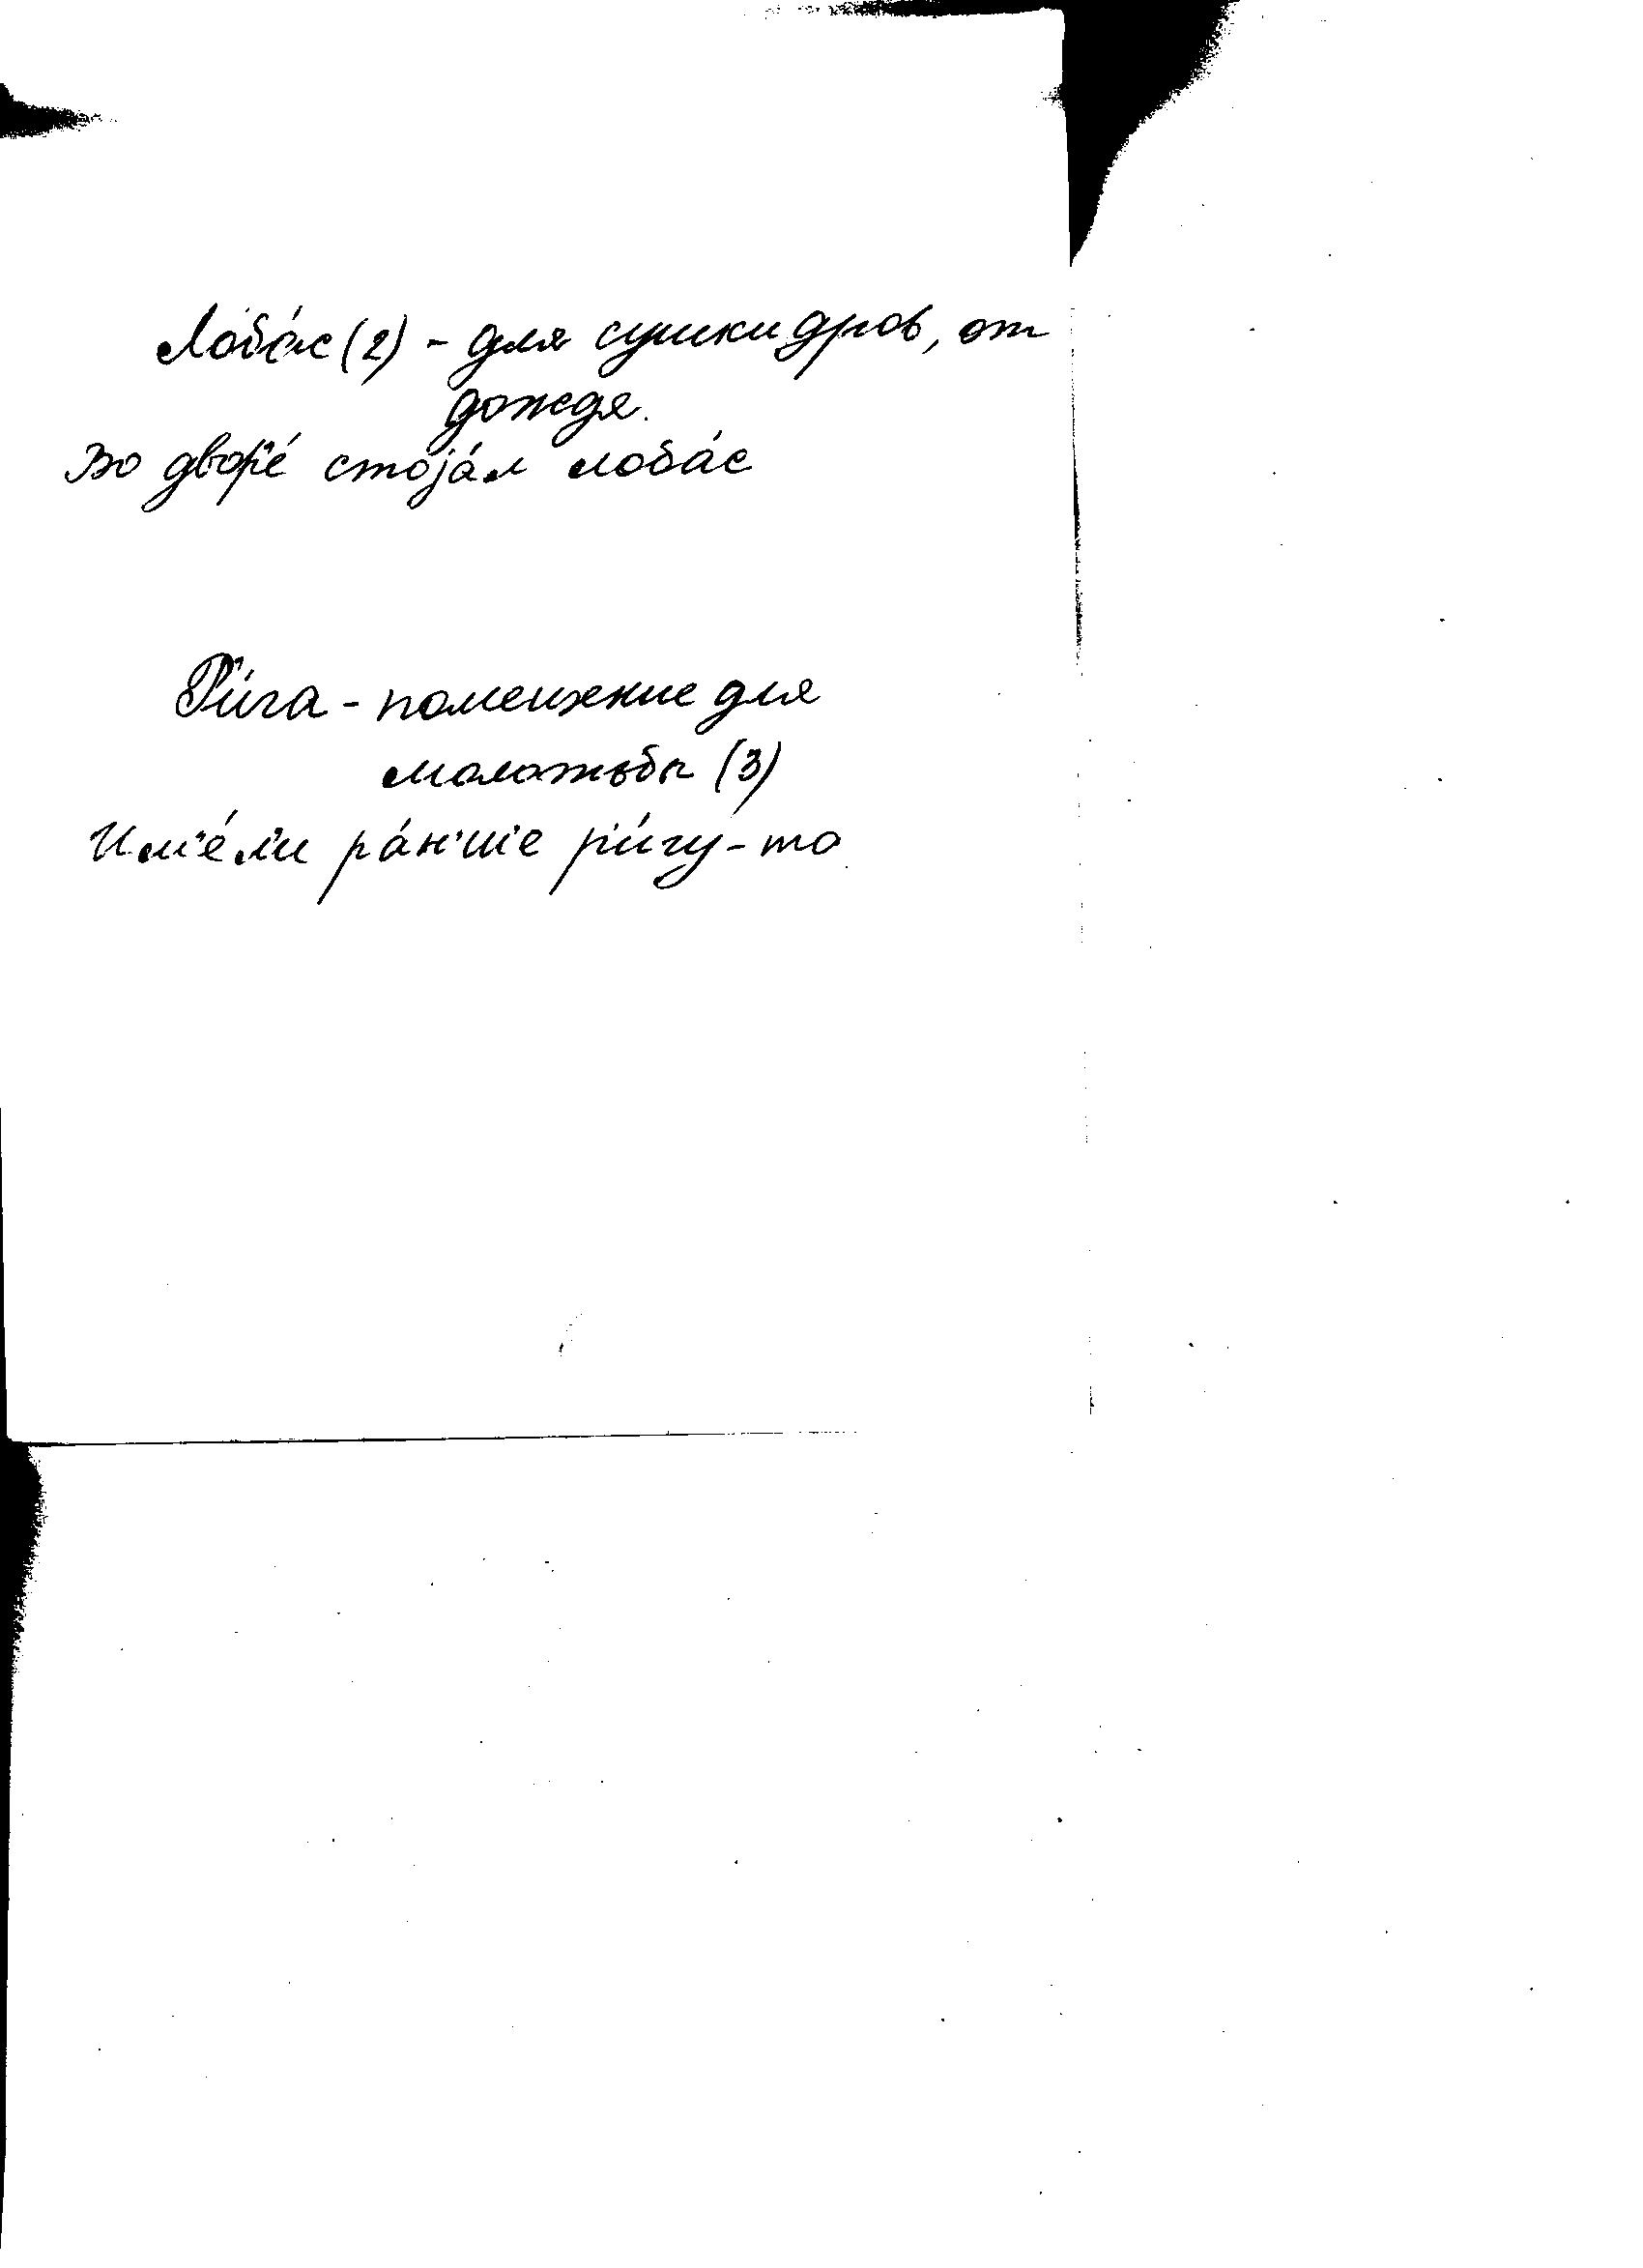 Лоба́с (2) - для сушки дров, от
дождя.
Во двор'е́ стоjа́л лоба́с
Р'и́га - помещение для
молотьбы (3)
Им'е́л'и ра́н'ше р'и́гу-то